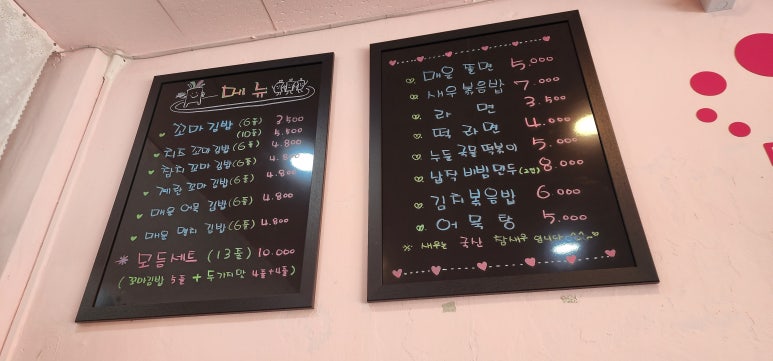 메뉴
꼬마김밥 (6줄) 3.500
(10줄) 5.500
치즈 꼬마김밥 (6줄) 4.800
참치 꼬마김밥 (6줄) 4.800
계란 꼬마김밥 (6줄) 4.800
매운 어묵 김밥 (6줄) 4.800
매운 멸치 김밥 (6줄) 4.800
모듬세트 (13줄) 10.000
(꼬마김밥 5줄 + 두가지맛 4줄+4줄)
매운 쫄면 5.000
새우볶음밥 7.000
라면 3.500
떡라면 4.000
누들 국물 떡볶이 5.000
납작 비빔만두 8.000
김치볶음밥 6.000
어묵탕 5.000
※ 새우는 국산 참새우 입니다